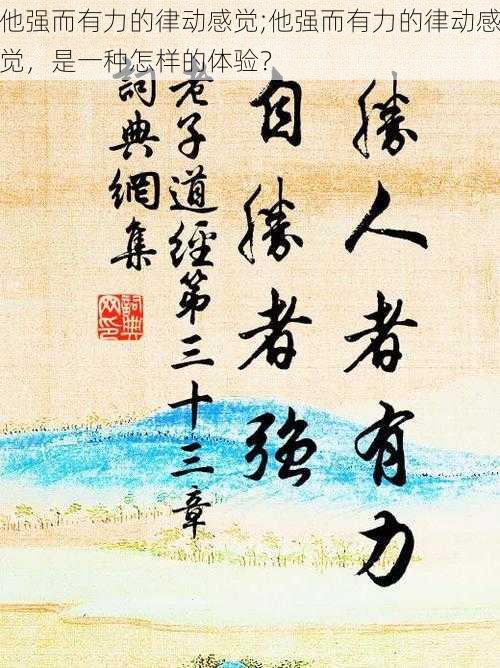 他强而有力的律动感觉;他强而有力的律动感
觉，是一种怎样的体验？
勝人者有力
自勝者強
老子道經第三十三章
詞典網集
詞典
网印